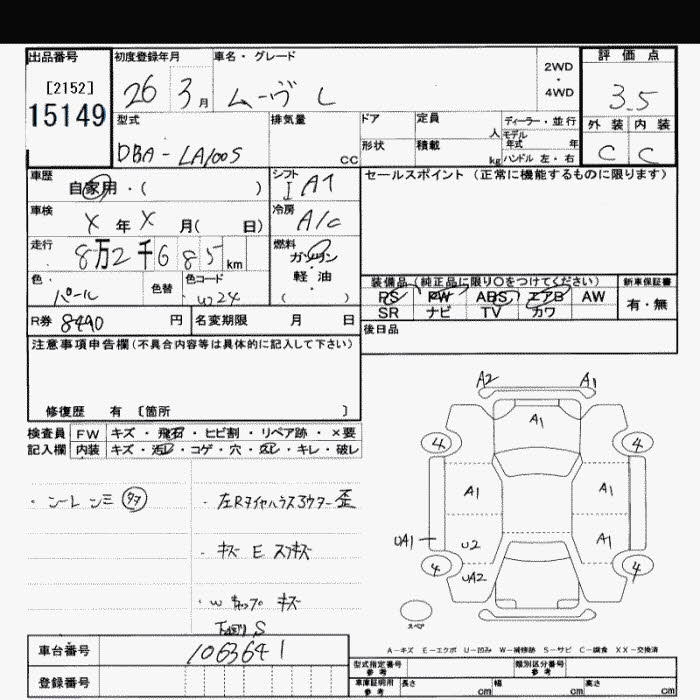 出品番号 初度登録年月 車名・グレード 2WD・4WD 評価点
[2152] 26 3月 ムーヴ L 3.5
15149 型式 排気量 ドア 定員 人 ディーラー・並行 外装 内装
DBA-LA100S cc 形状 積載 kg モデル年式 年 ハンドル 左・右 C C
車歴 自家用・( ) シフト IAT セールスポイント (正常に機能するものに限ります)
車検 X 年 X 月( 日) 冷房 A/C
走行 8万2千685km 燃料 ガソリン・軽油 ( )
色 パール 色替 色コード W24 装備品 (純正品に限り○をつけてください) 新車保証書
PS PW ABS エアB AW 有・無
SR ナビ TV カワ
R券 8490 円 名変期限 月 日 後日品
注意事項申告欄 (不具合内容等は具体的に記入して下さい)
修復歴 有 [箇所 ]
検査員 FW キズ・飛石・ヒビ割・リペア跡・×要
記入欄 内装 キズ・汚レ・コゲ・穴・欠レ・キレ・破レ
A2 A1
A1
4 4
A1 A1
UA1 U2 A1
4 UA2 4
スペア
・左Rタイヤハウス
・キズ E スリキズ
下廻り S
A-キズ E-エクボ U-凹み W-補修跡 S-サビ C-腐食 XX-交換済
車台番号 1063641 型式指定番号 参考 類別区分番号 参考
登録番号 車庫証明用 参考 長さ cm 幅 cm 高さ cm